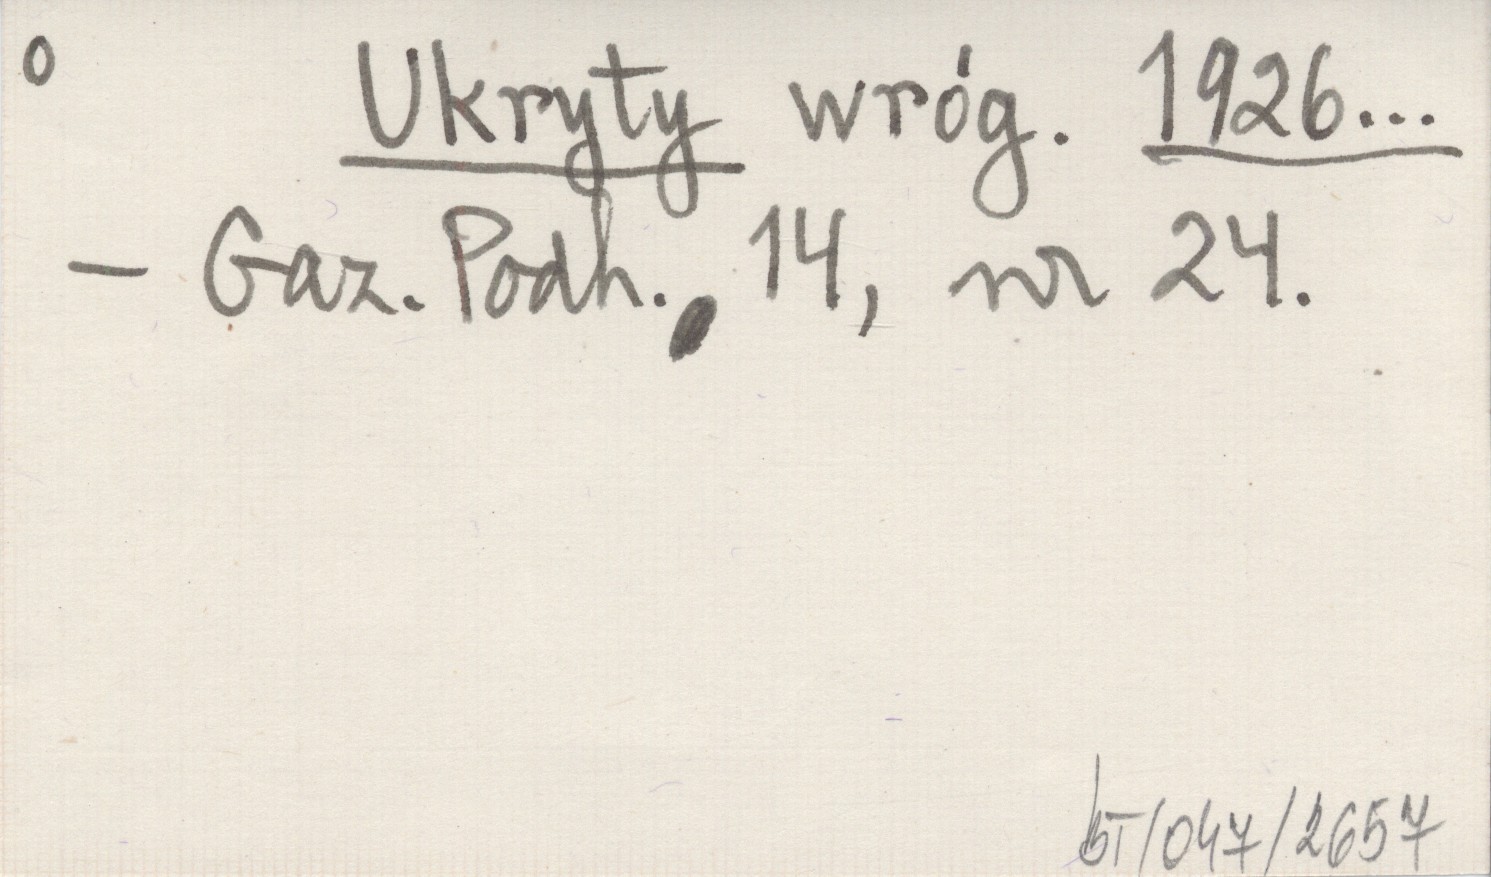 o Ukryty wróg. 1926...
— Gaz. Podh., 14, nr 24.
bT/047/2657